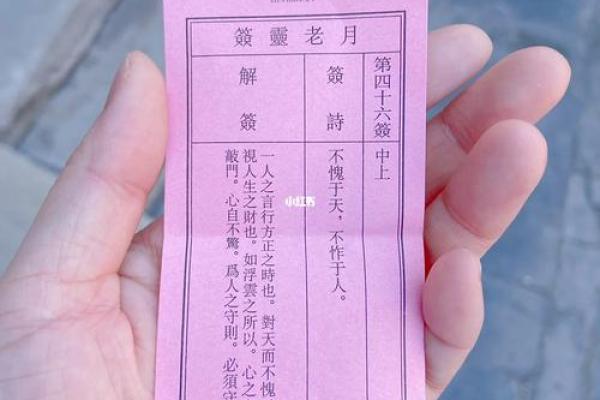 月老靈簽
第四十六簽 中上
簽詩
不愧于天，不怍于人。
解簽
一人之言行方正之時也。對天而不愧
視人生之財也。如浮雲之所以。心之
敲門。心自不驚。爲人之守則。必須守
小红书